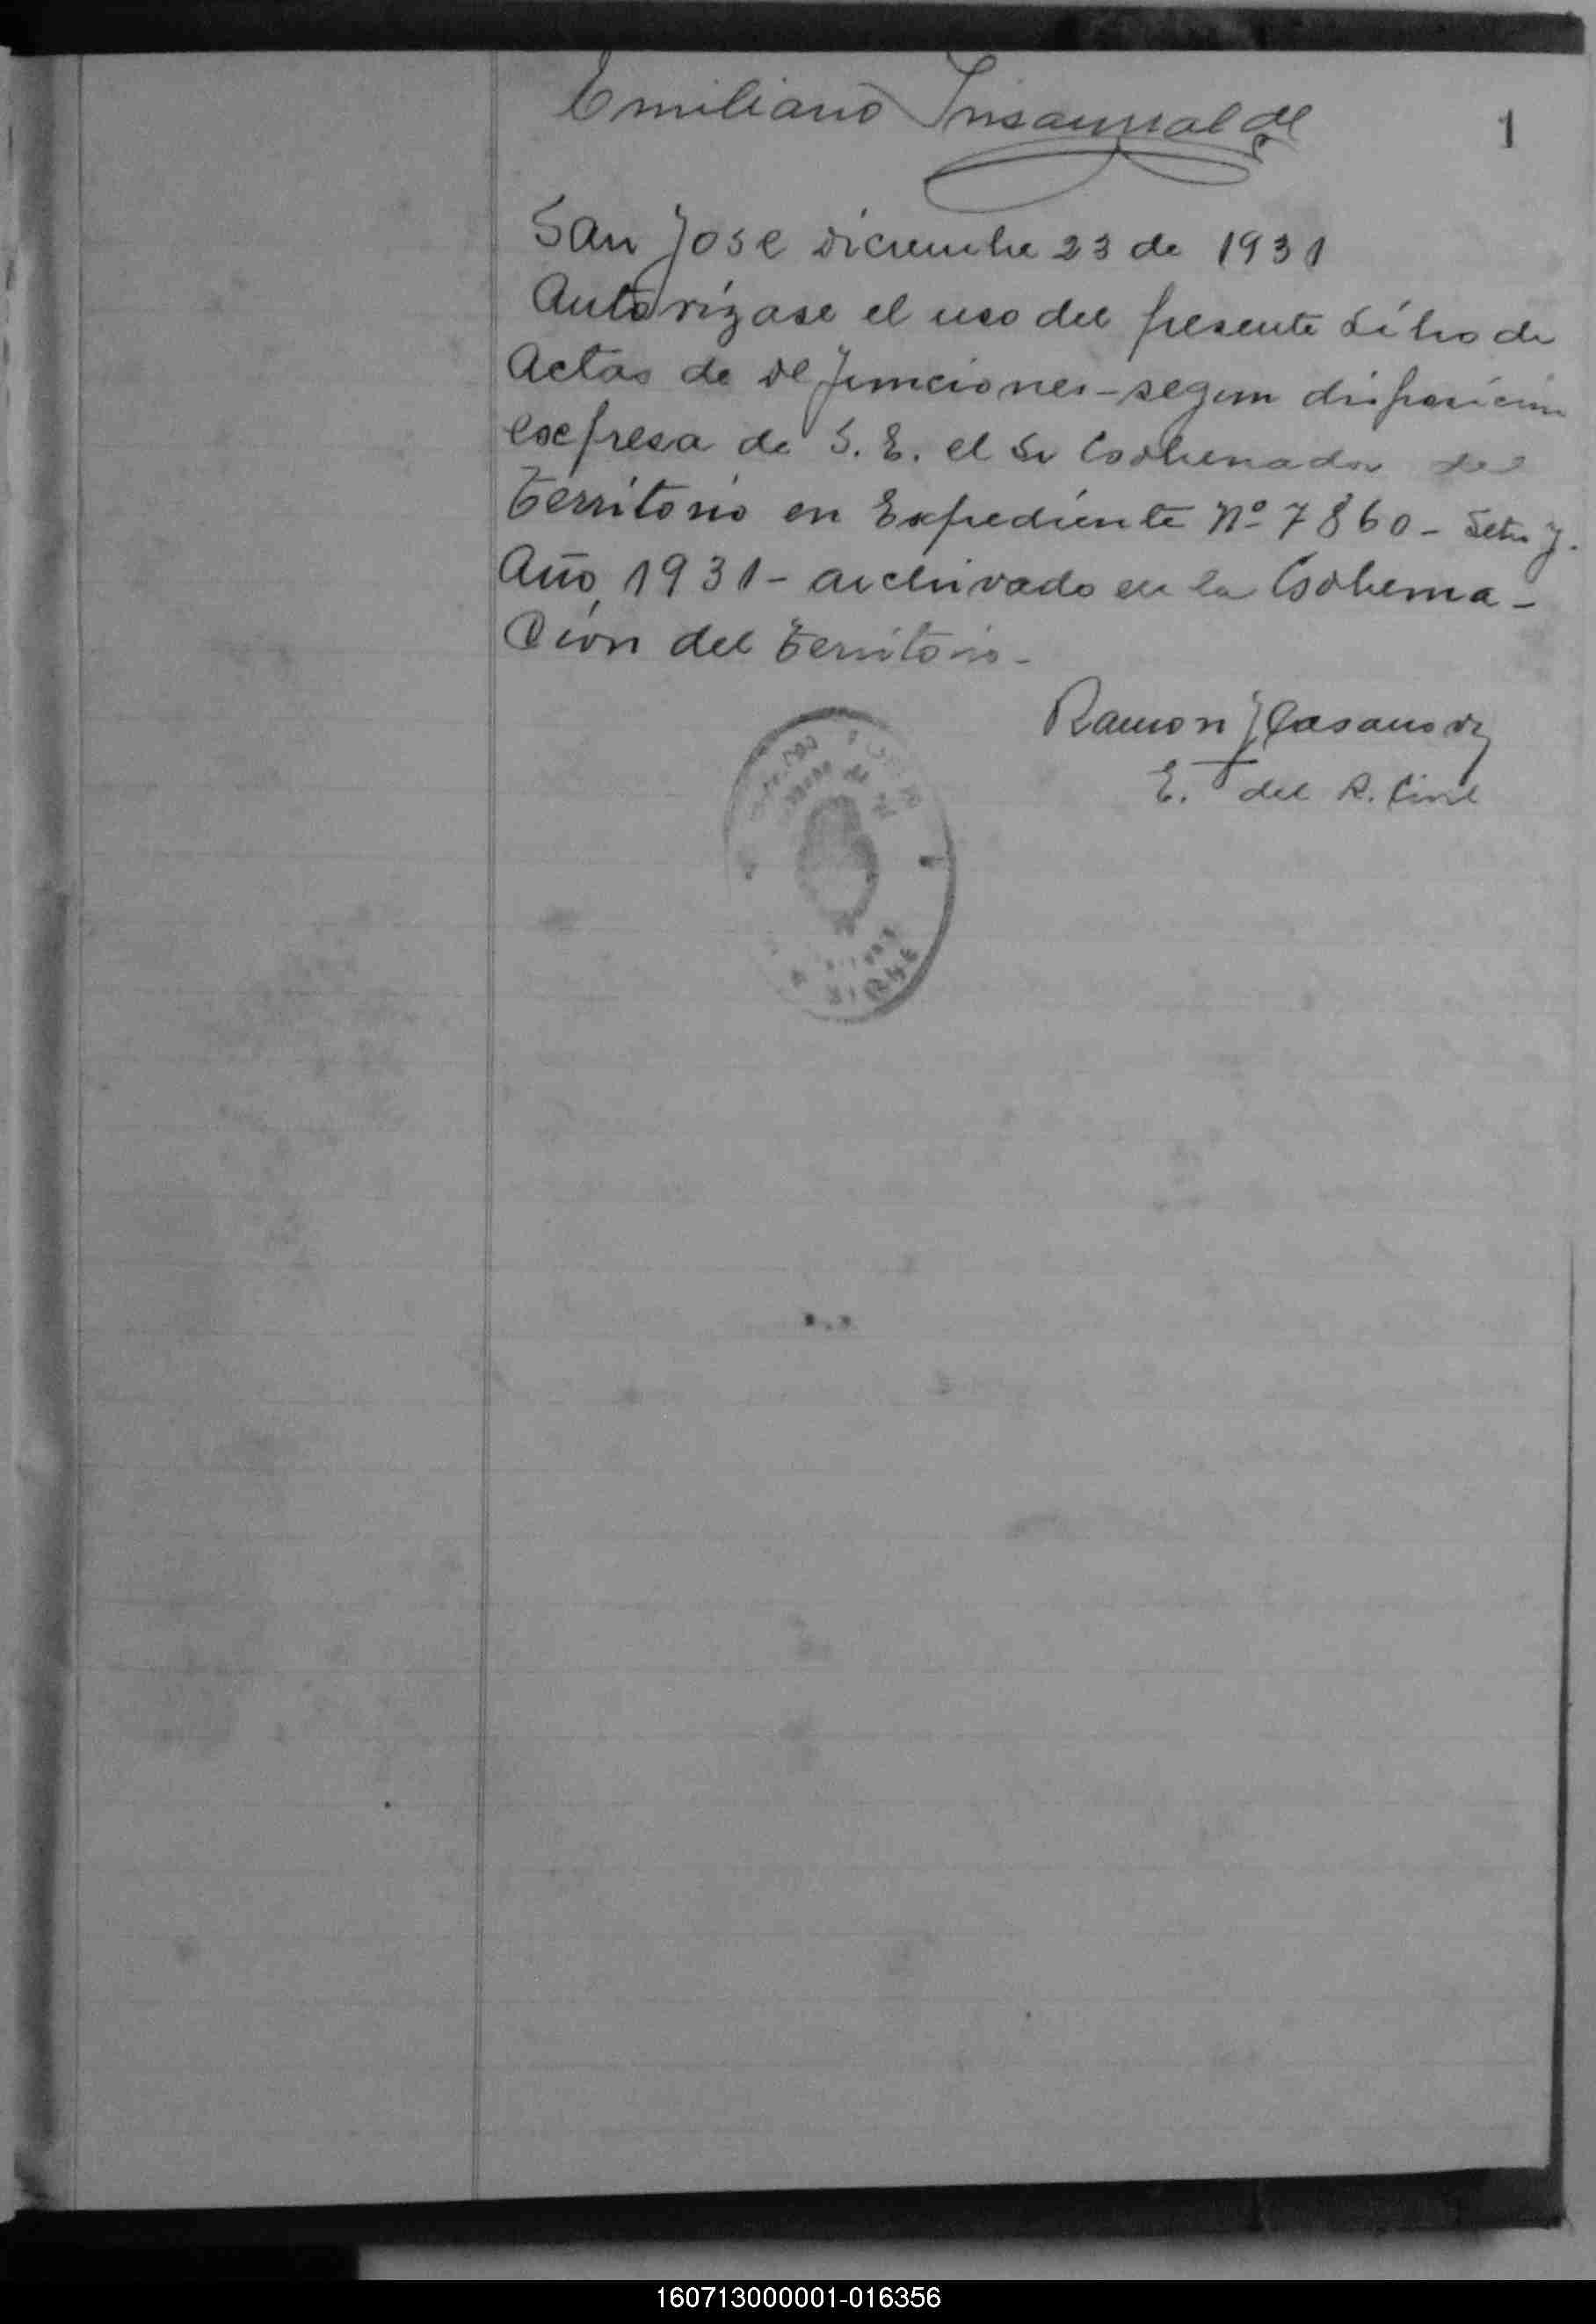 Emiliano Insaurralde
1
San Jose diciembre 23 de 1931
Autorízase el uso del presente Libro de
Actas de defunciones - segun disposicion
expresa de S. E. el Sr Gobernador del
Territorio en Expediente Nº 7860 - Letra J.
Año, 1931 - archivado en la Goberna-
cion del Territorio -
Ramon J Casanova
E. del R. Civil
160713000001-016356